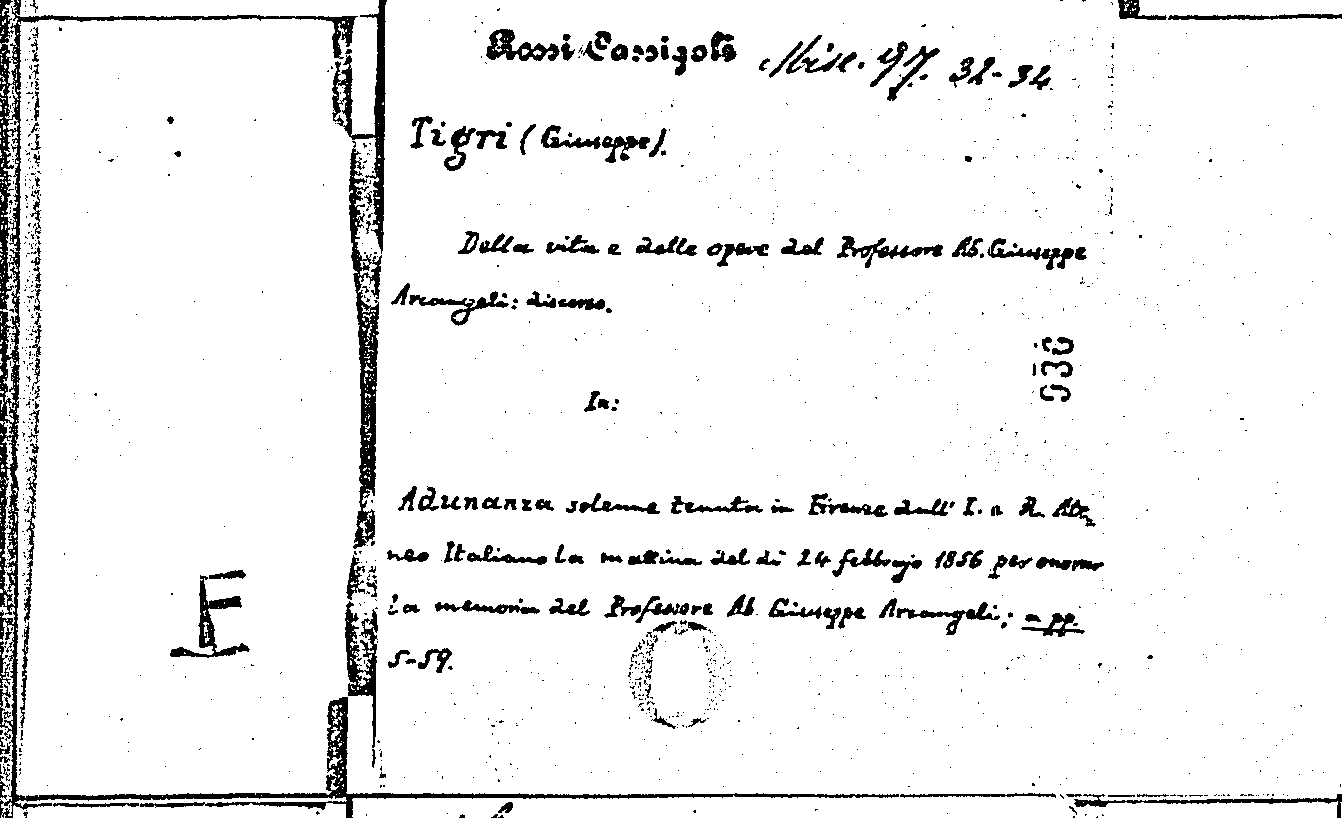 Rossi Cassigoli Misc. 97. 32-34
Tigri (Giuseppe).
Della vita e delle opere del Professore Ab. Giuseppe
Arcangeli: discorso.
936
In:
Adunanza solenne tenuta in Firenze dall' I. e R. Ate-
neo Italiano la mattina del dì 24 febbrajo 1856 per onorar
la memoria del Professore Ab. Giuseppe Arcangeli; a pp.
5-59.
F